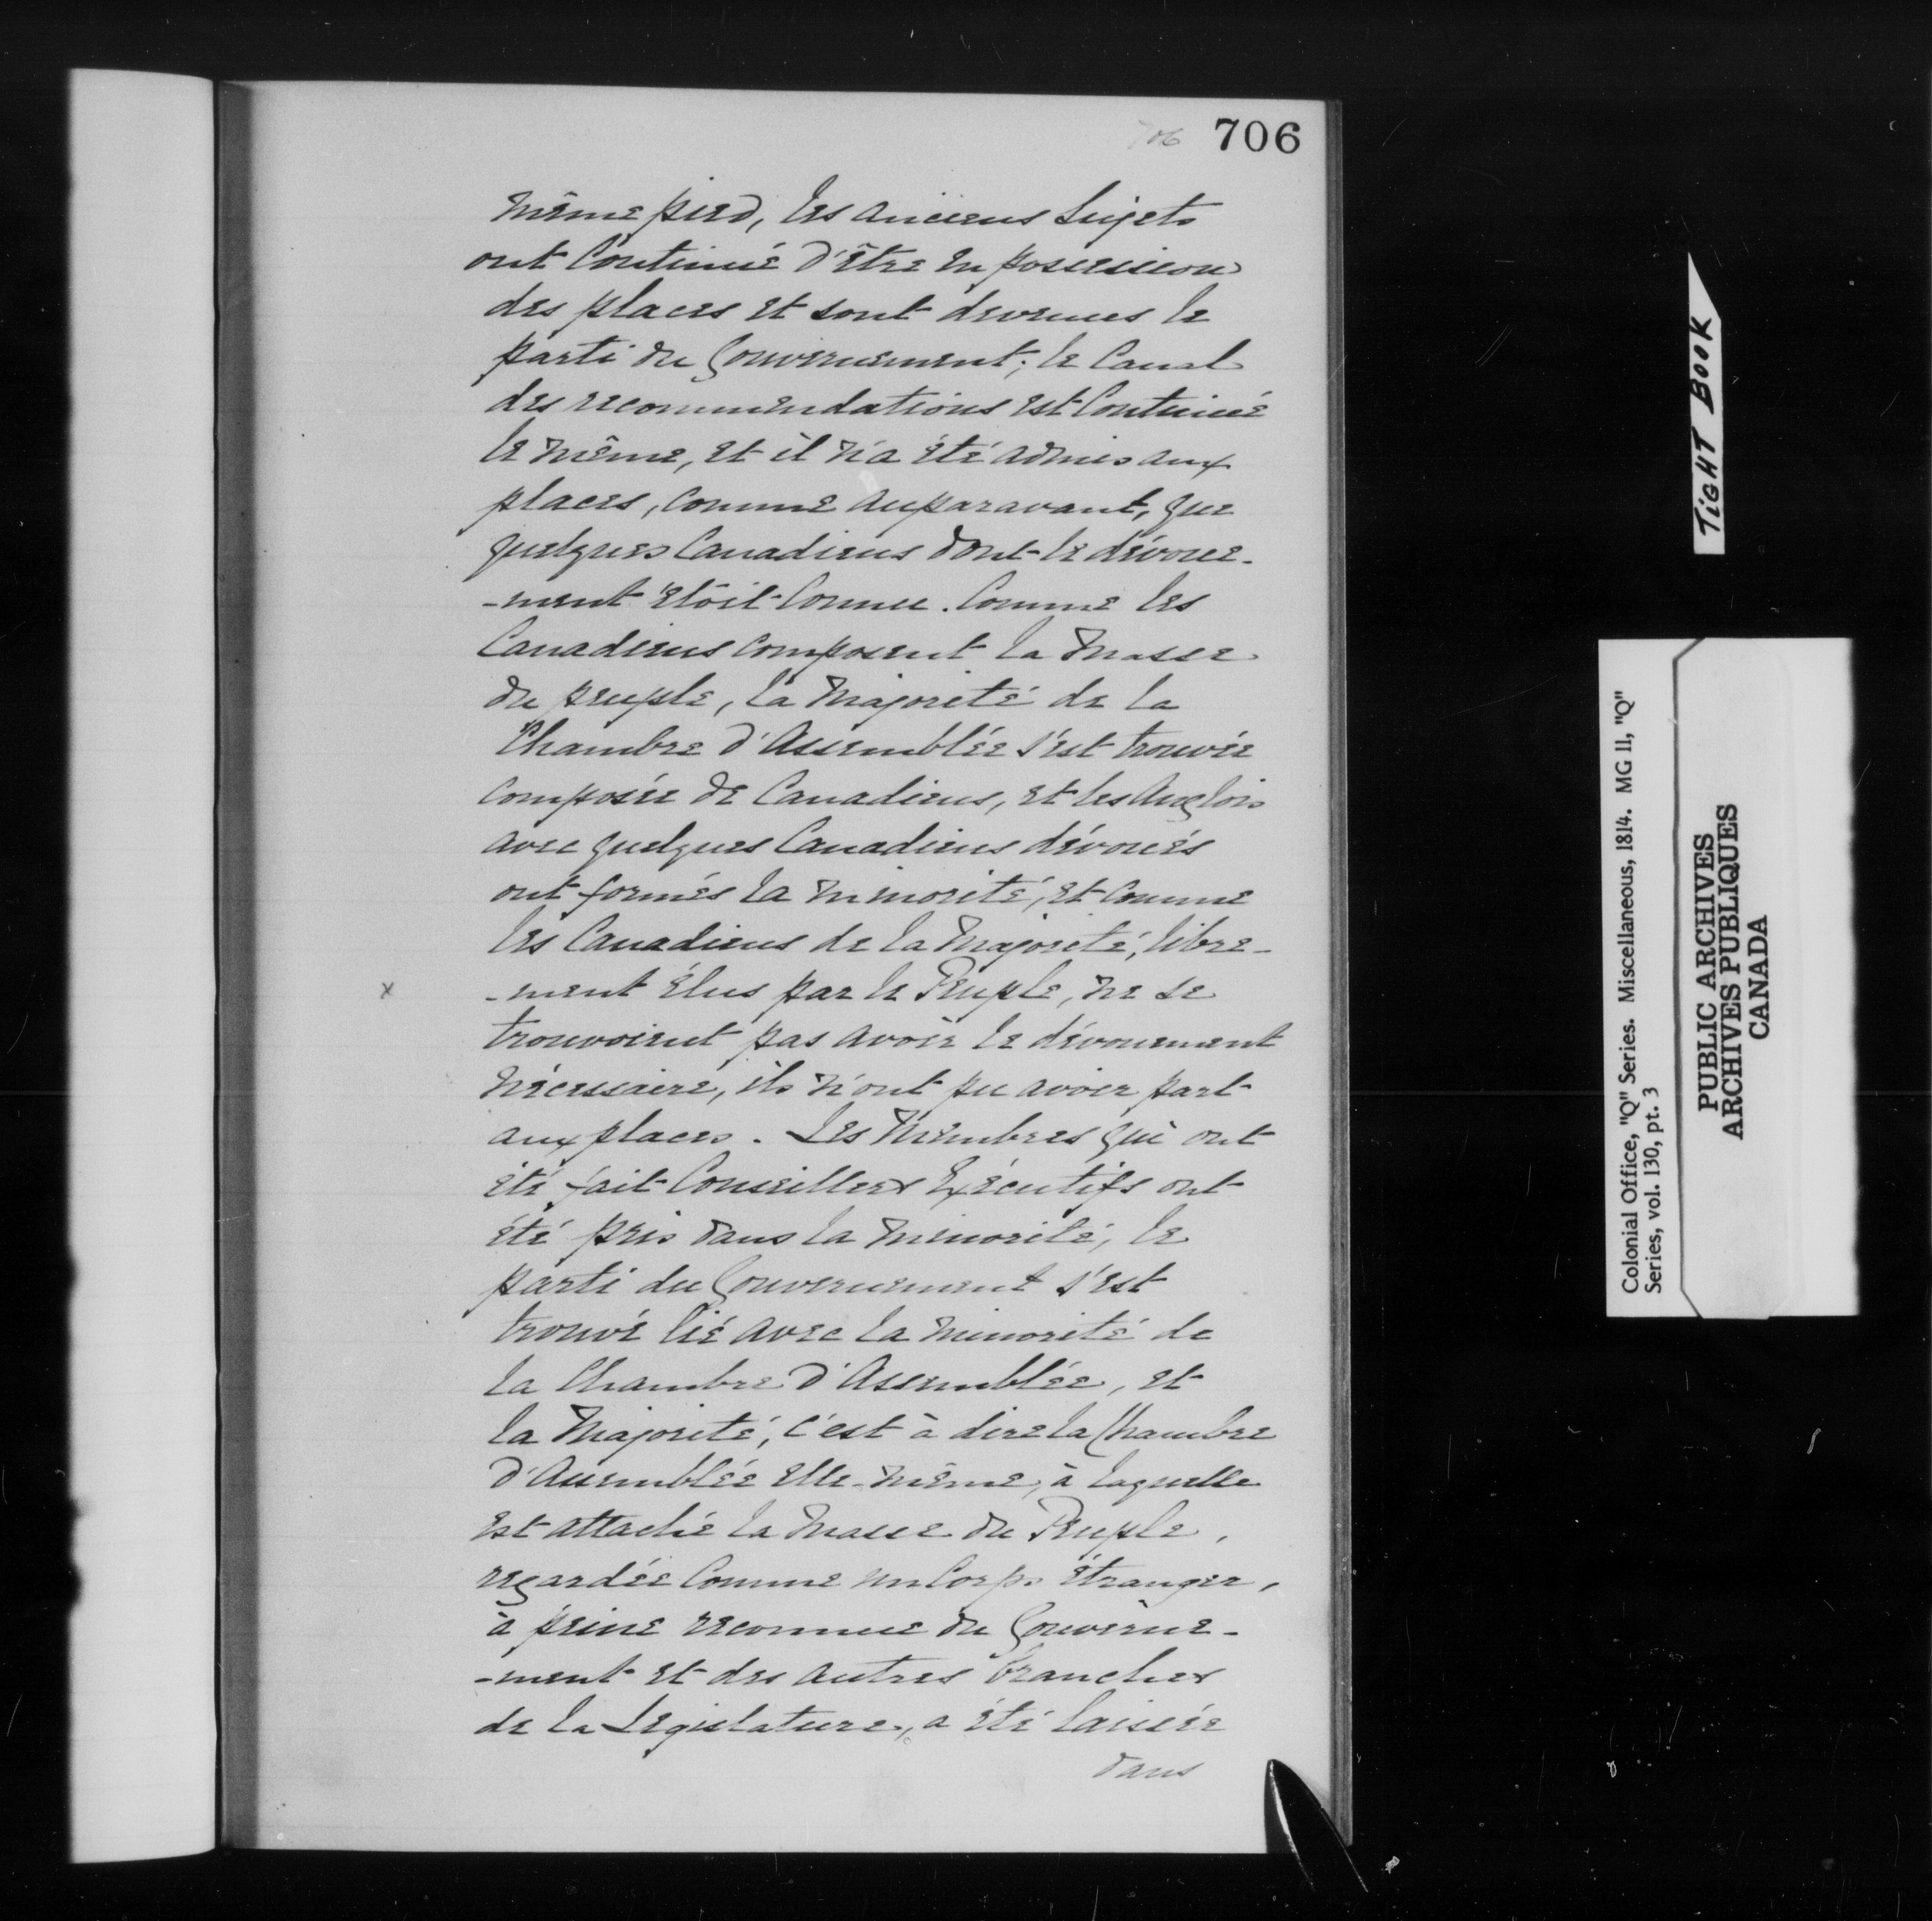 706 706
même pied, les anciens Sujets
ont Continué d'être en possession
des places et sont devenus le
parti du Gouvernement; le Canal
des recommendations est Continué
le même, et il n'a été admis aux
places, Comme auparavant, que
quelques Canadiens dont le dévoue-
-ment étoit Connu. Comme les
Canadiens composent la Masse
du peuple, la Majorité de la
Chambre d'Assemblée s'est trouvée
composée de Canadiens, et les Anglois
avec quelques Canadiens dévoués
ont formés la minorité, et Comme
les Canadiens de la Majorité, libre-
x -ment élus par le Peuple, ne se
trouvoient pas avoir le dévouement
nécessaire, ils n'ont pu avoir part
aux places. Les Membres qui ont
été fait Conseillers Exécutifs ont
été pris dans la minorité, le
parti du Gouvernement s'est
trouvé lié avec la minorité de
la Chambre d'Assemblée, et
la Majorité, c'est à dire la Chambre
d'Assemblée elle-même, à laquelle
est attachée la Masse du Peuple,
regardée Comme un Corps étranger,
à peine reconnue du Gouverne-
-ment et des autres branches
de la Législature, a été laissée
dans
TIGHT BOOK
Colonial Office, "Q" Series. Miscellaneous, 1814. MG 11, "Q"
Series, vol. 130, pt. 3
PUBLIC ARCHIVES
ARCHIVES PUBLIQUES
CANADA